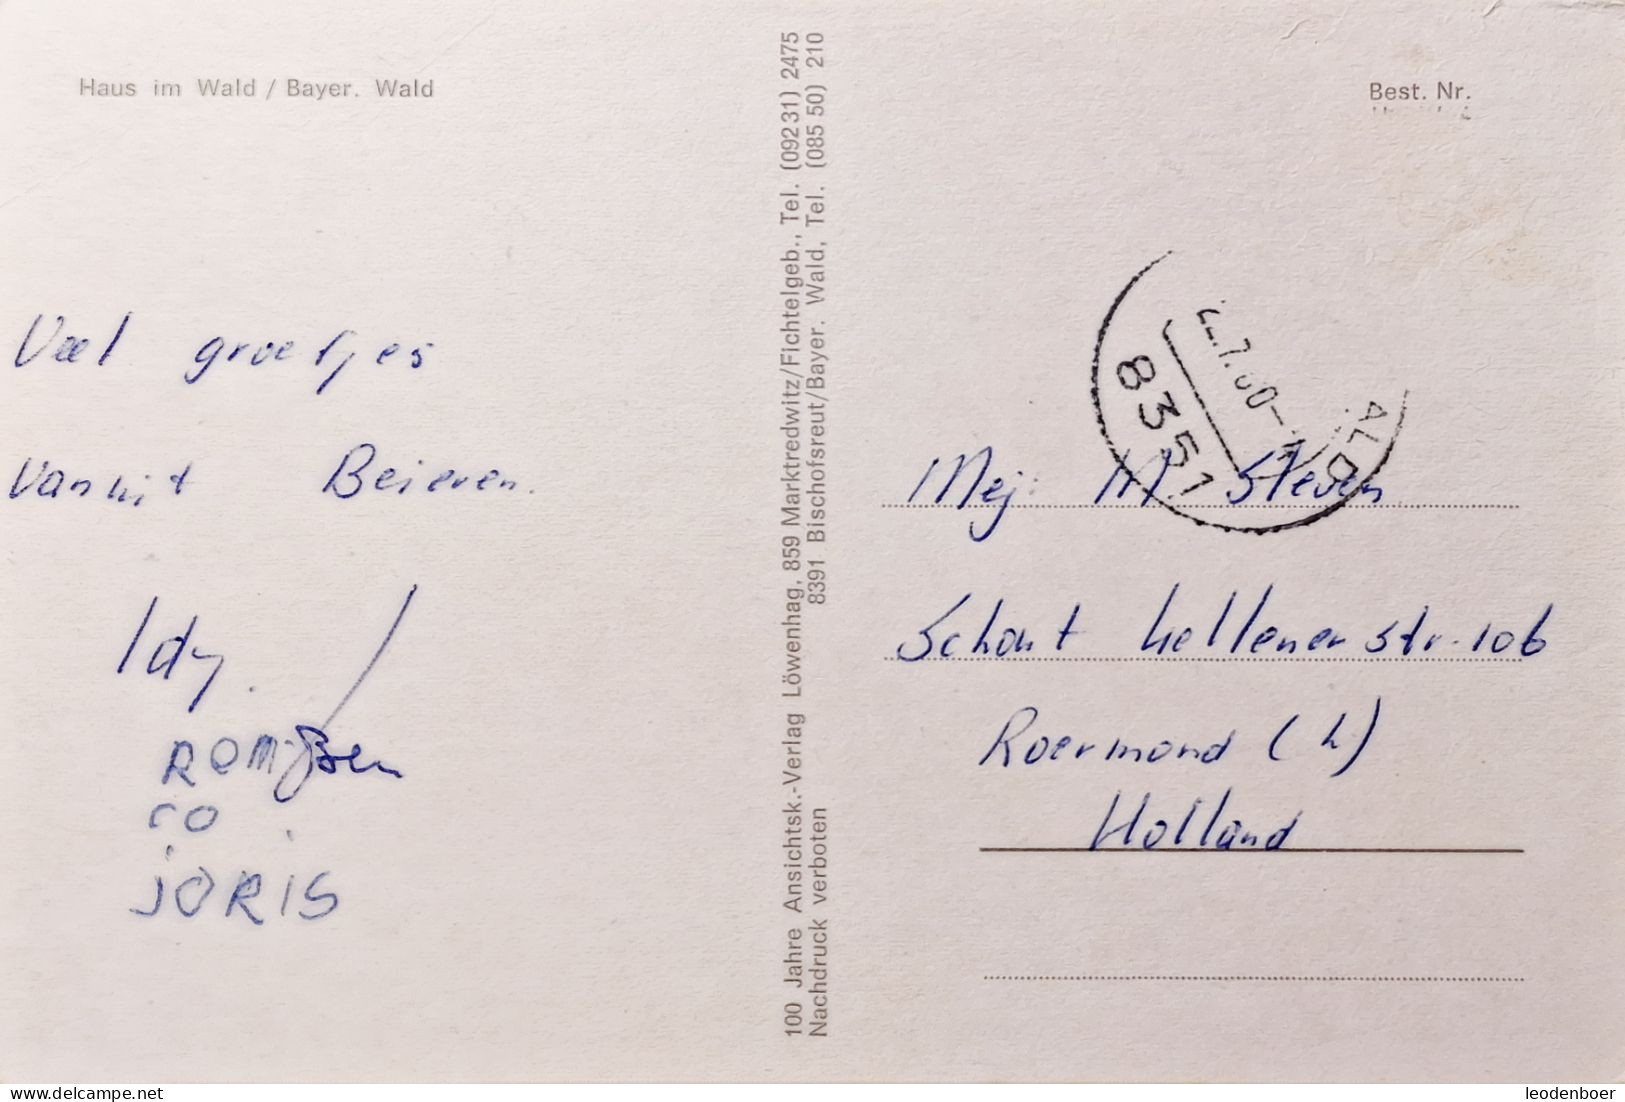 Haus im Wald / Bayer. Wald
Veel groetjes
vanuit Beieren.
Idy.
ROMijsen
CO
JORIS
100 Jahre Ansichtsk.-Verlag Löwenhag, 859 Marktredwitz/Fichtelgeb., Tel. (092 31) 2475
Nachdruck verboten 8391 Bischofsreut/Bayer. Wald, Tel. (085 50) 210
Best. Nr.
8351
ALD
Mej. M Steven
Schout Hellenerstr. 106
Roermond (L)
Holland
Delcampe.net
leodenboer